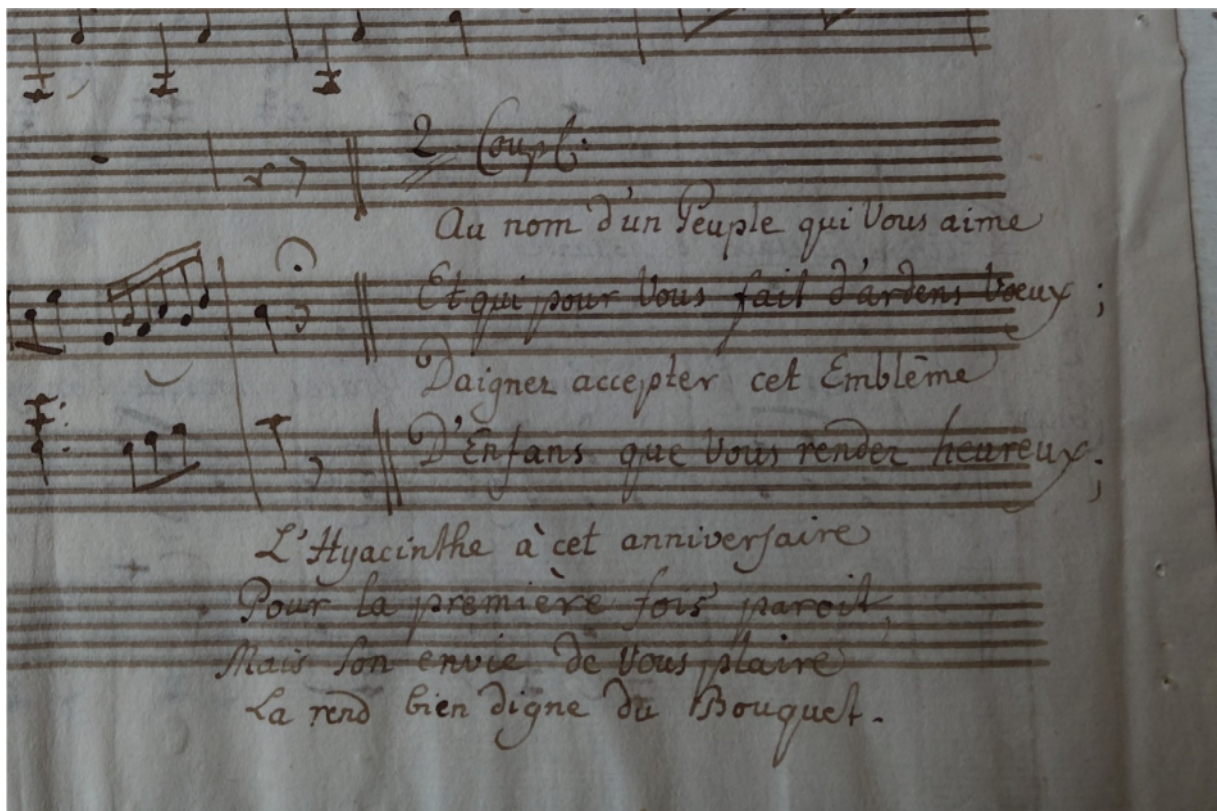 2 Coupl:
Au nom d'un Peuple qui Vous aime
Et qui pour Vous fait d'ardens Vœux ;
Daignez accepter cet Emblême
D'Enfans que Vous rendez heureux ;
L'Hyacinthe à cet anniversaire
Pour la première fois paroit,
Mais son envie de Vous plaire
La rend bien digne du Bouquet.